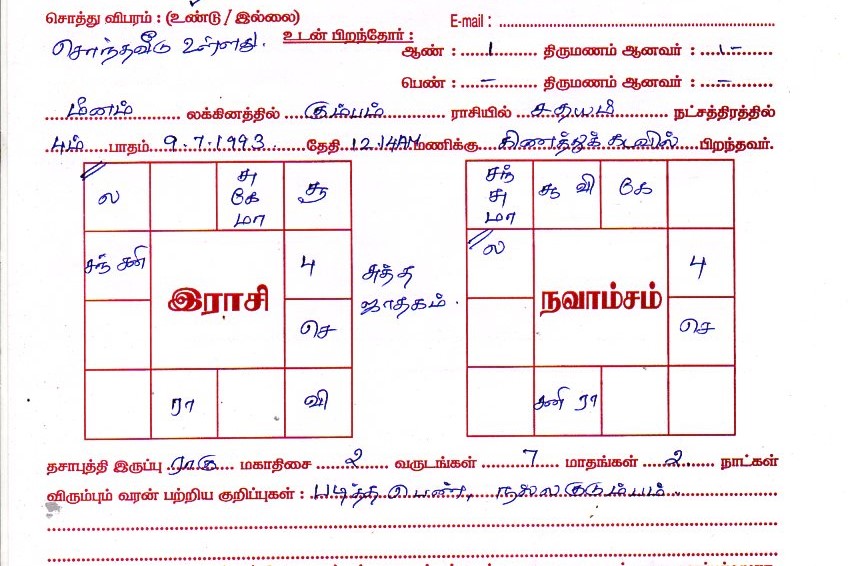 சொத்து விபரம் : (உண்டு / இல்லை)
E-mail :
சொந்தவீடு உள்ளது.
உடன் பிறந்தோர் :
ஆண் : 1 திருமணம் ஆனவர் : 1-
பெண் : – திருமணம் ஆனவர் : –
மீனம் லக்கினத்தில் கும்பம் ராசியில் சதயம் நட்சத்திரத்தில்
4ம் பாதம் 9.7.1993 தேதி 12.14AM மணிக்கு கிணத்துக்கடவில் பிறந்தவர்.
ல சு கே மா சூ
சந் சனி 4
இராசி
செ
ரா வி
சுத்த ஜாதகம்.
சந் சு மா சூ வி கே
ல 4
நவாம்சம்
செ
சனி ரா
தசாபுத்தி இருப்பு ராகு மகாதிசை 2 வருடங்கள் 7 மாதங்கள் 2 நாட்கள்
விரும்பும் வரன் பற்றிய குறிப்புகள் : படித்த பெண், நல்ல குடும்பம்.